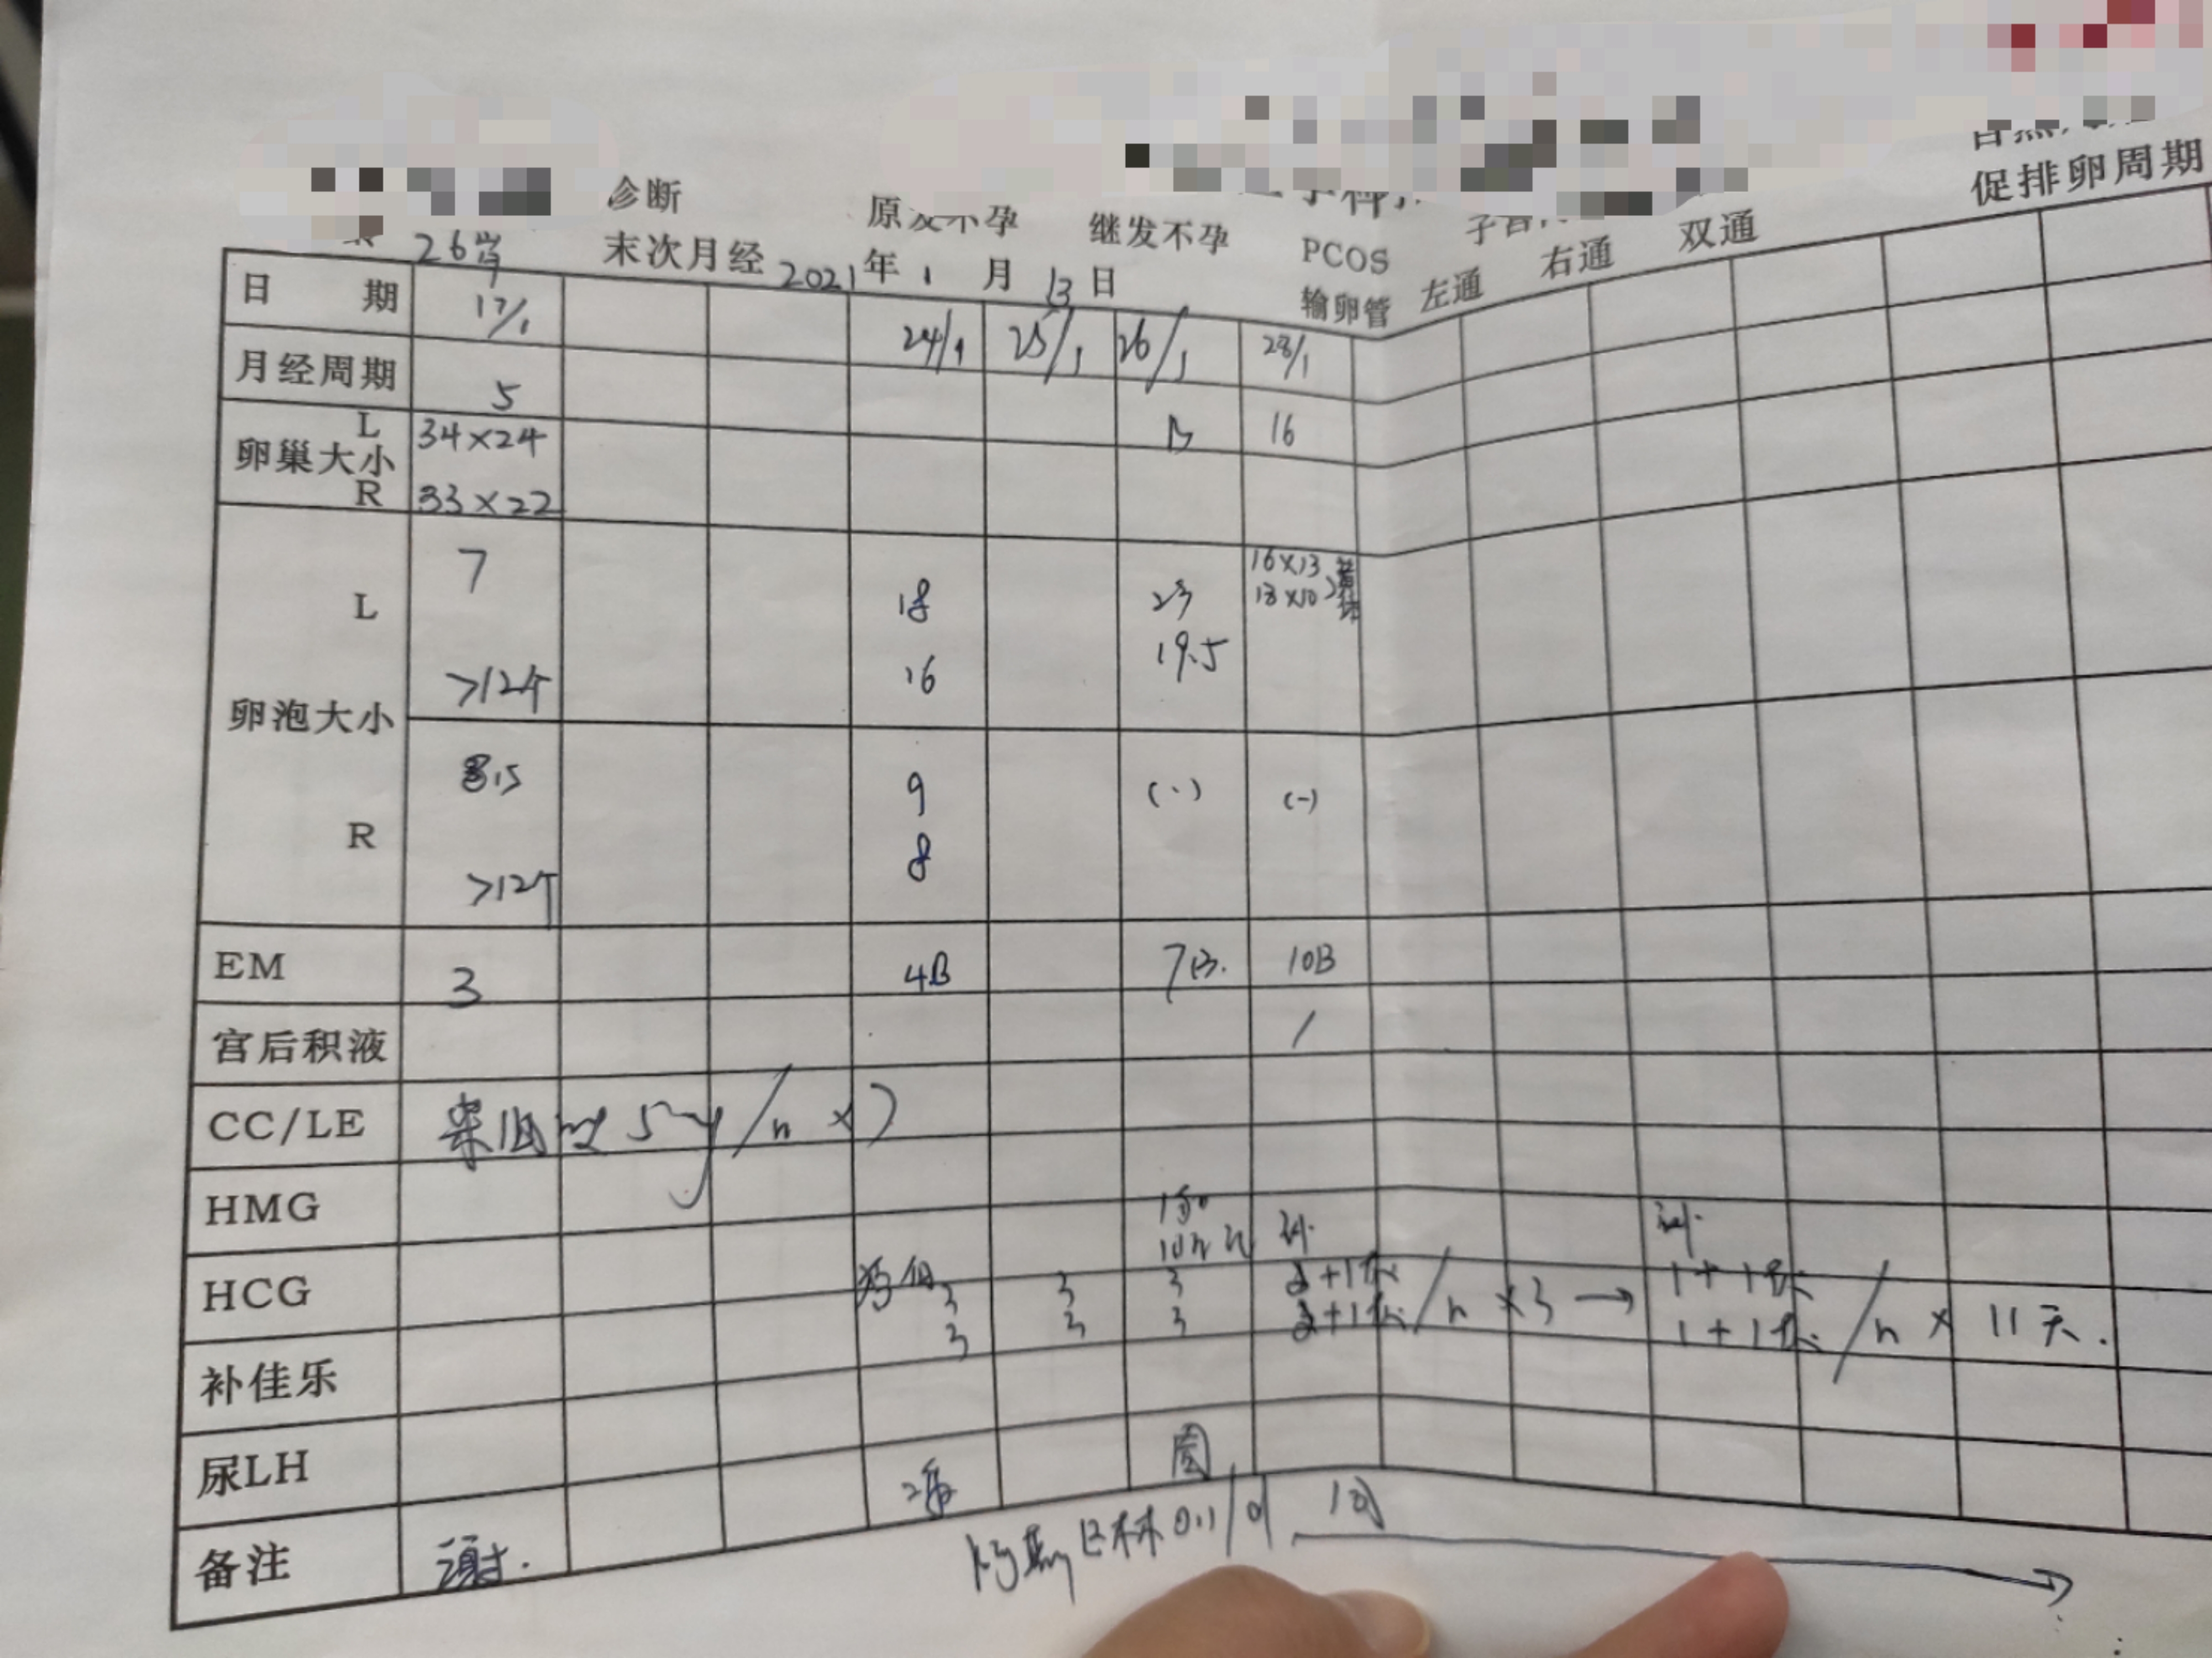 促排卵周期
诊断 原发不孕 继发不孕 PCOS
26岁 末次月经 2021年1月13日 输卵管 左通 右通 双通
日期 17/1 24/1 25/1 26/1 28/1
月经周期 5 16
卵巢大小 L 34×24
R 33×22
卵泡大小 L 7 18 23 16×13 黄体
>12个 16 19.5 18×10
R 8.5 9 (-) (-)
>12个 8
EM 3 4B 7B. 10B
宫后积液 /
CC/LE 来曲唑 5mg/n ×7
HMG
HCG
3 3 3 2+1 /n ×3 → 1+1
3 3 3 2+1 1+1 /n × 11天.
补佳乐
尿LH
备注 谢.
阿司匹林 0.1/d